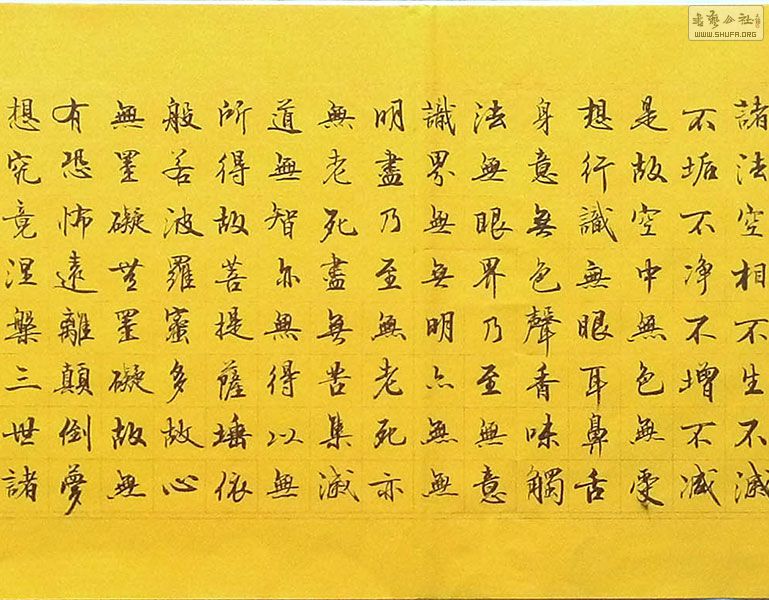 諸法空相不生不滅
不垢不净不增不减
是故空中無色無受
想行識無眼耳鼻舌
身意無色聲香味觸
法無眼界乃至無意
識界無無明亦無無
明盡乃至無老死亦
無老死盡無苦集滅
道無智亦無得以無
所得故菩提薩埵依
般若波羅蜜多故心
無罣礙無罣礙故無
有恐怖遠離顛倒夢
想究竟涅槃三世諸
書藝公社
WWW.SHUFA.ORG